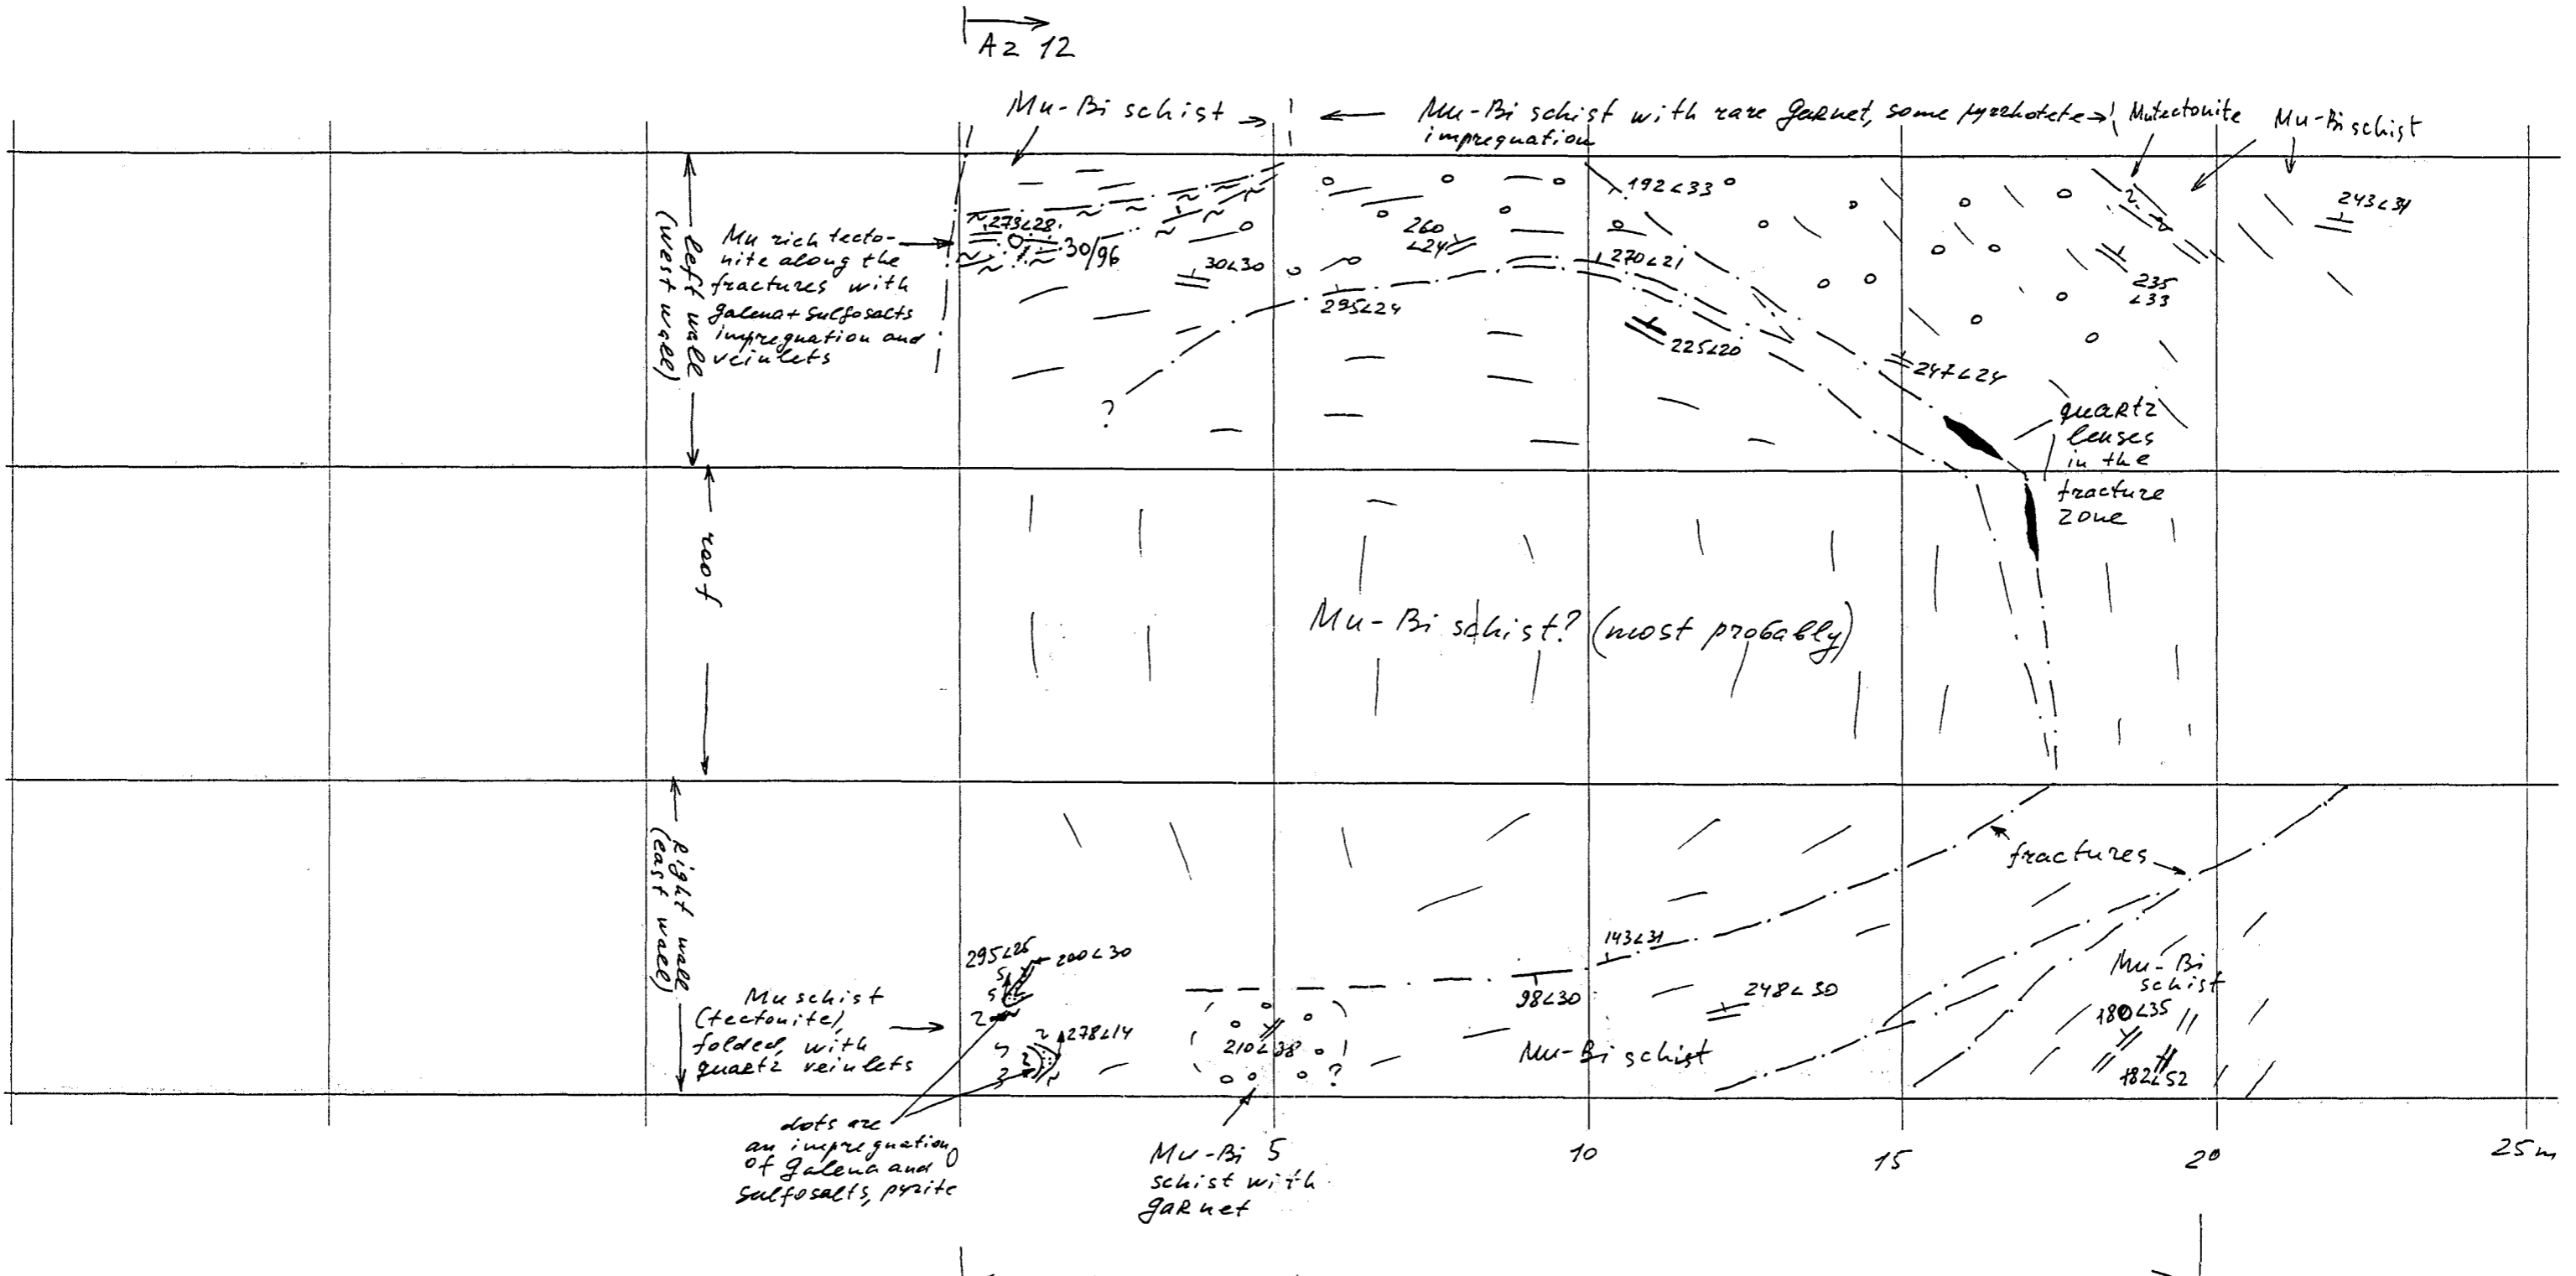 Az 12
Mu-Bi schist
Mu-Bi schist with rare garnet, some pyrrhotete
impregnation
Mutectonite
Mu-Bi schist
left wall
(west wall)
Mu rich tecto-
nite along the
fractures with
galena+sulfosalts
impregnation and
veinlets
273<28
30/96
30<30
260
<24
295<24
192<33
270<21
225<20
247<24
235
<33
243<31
?
quartz
lenses
in the
fracture
zone
roof
Mu-Bi schist? (most probably)
Right wall
(east wall)
fractures
295<25
200<30
278<14
Mu schist
(tectonite),
folded, with
quartz veinlets
210<38
?
98<30
143<31
248<30
Mu-Bi schist
Mu-Bi
schist
180<35
182<52
dots are
an impregnation
of galena and
sulfosalts, pyrite
0
5
10
15
20
25m
Mu-Bi
schist with
garnet